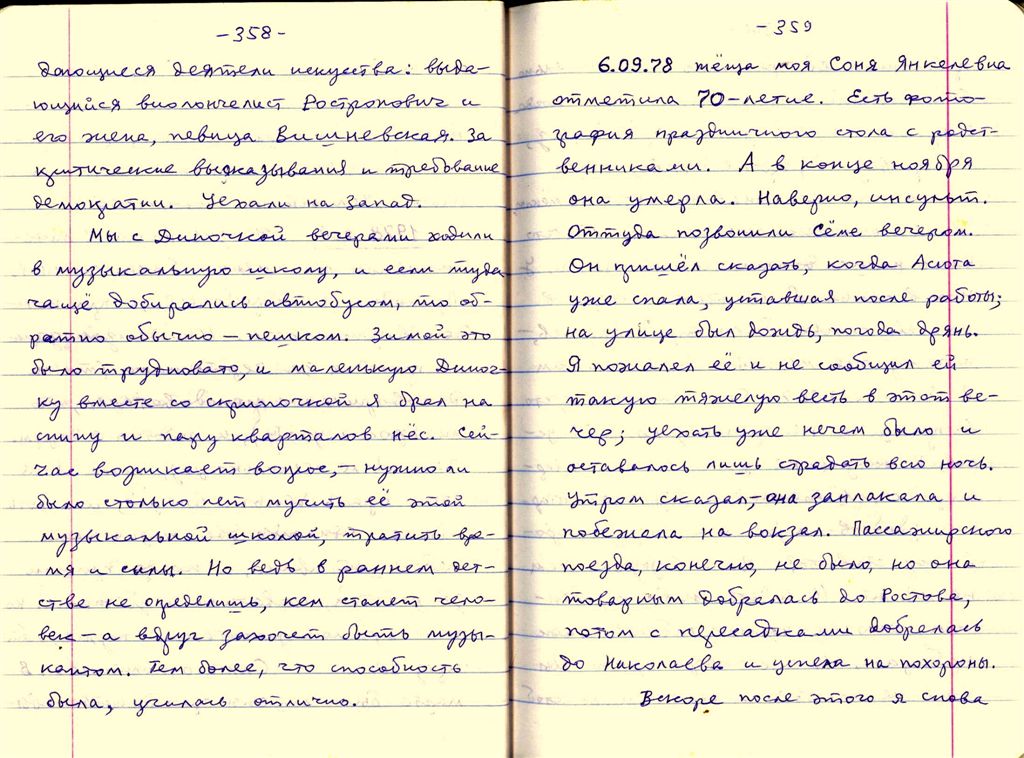 -358-
дающиеся деятели искуства: выда-
ющийся виолончелист Ростропович и
его жена, певица Вишневская. За
критические высказывания и требование
демократии. Уехали на Запад.
Мы с Диночкой вечерами ходили
в музыкальную школу, и если туда
чащё добирались автобусом, то об-
ратно обычно – пешком. Зимой это
было трудновато, и маленькую Диноч-
ку вместе со скрипочкой я брал на
спину и пару кварталов нёс. Сей-
час возникает вопрос, – нужно ли
было столько лет мучить её этой
музыкальной школой, тратить вре-
мя и силы. Но ведь в раннем дет-
стве не определишь, кем станет чело-
век – а вдруг захочет быть музы-
кантом. Тем более, что способность
была, училась отлично.
-359
6.09.78 тёща моя Соня Янкелевна
отметила 70-летие. Есть фото-
графия праздничного стола с родст-
венниками. А в конце ноября
она умерла. Наверно, инсульт.
Оттуда позвонили Сёме вечером.
Он пришёл сказать, когда Асюта
уже спала, уставшая после работы;
на улице был дождь, погода дрянь.
Я пожалел её и не сообщил ей
такую тяжелую весть в этот ве-
чер; уехать уже нечем было и
оставалось лишь страдать всю ночь.
Утром сказал, – она заплакала и
побежала на вокзал. Пассажирского
поезда, конечно, не было, но она
товарным добралась до Ростова,
потом с пересадками добралась
до Николаева и успела на похороны.
Вскоре после этого я снова